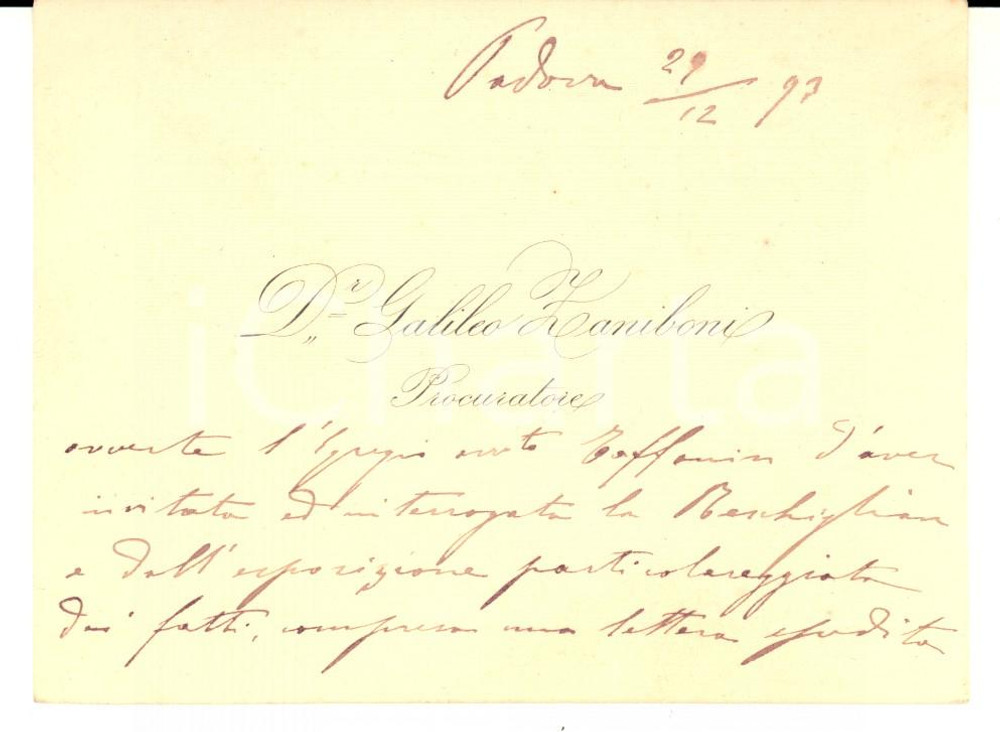 Padova 29/12 93
D.r Galileo Zaniboni
Procuratore
avverte l'Egregio avv.to Toffanin d'aver
invitata ed interrogata la Reschiglian
e dall'esposizione particolareggiata
dei fatti, compresa una lettera spedita
iCharta